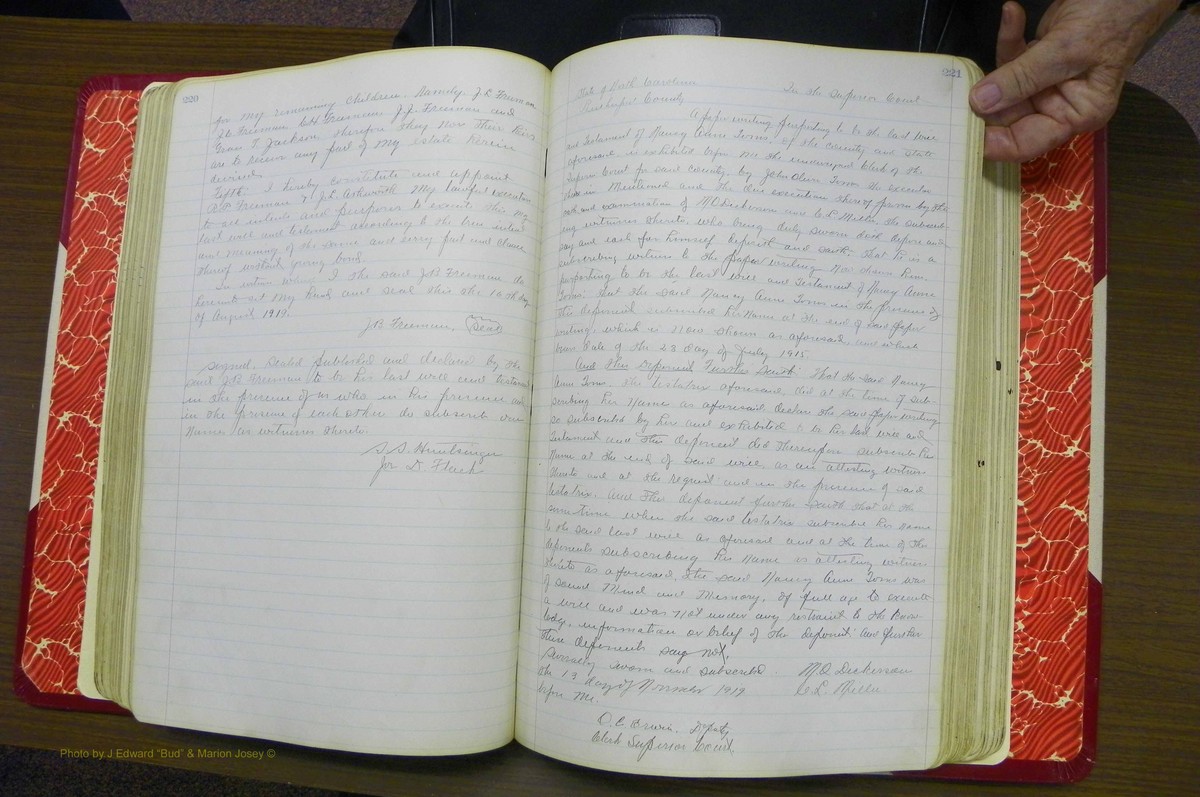 220
for my remaining children. Namely. J.L. Freeman
W. Freeman C.H. Freeman J.J. Freeman and
T. Jackson, therefore they nor their heirs
are to receive any part of my estate herein
devised
Fifth. I hereby constitute and appoint
R.P. Freeman & J.C. Ashworth my lawful executors
to all intents and purposes to execute this my
last will and testament according to the true intent
and meaning of the same and every part and clause
thereof without giving bond.
In witness whereof I the said J.B. Freeman do
hereunto set my hand and seal this the 10th day
of August 1919.
J.B. Freeman, (Seal)
Signed, Sealed Published and declared by the
said J.B. Freeman to be his last will and testament
in the presence of us who in his presence and
in the presence of each other do subscribe our
names as witnesses thereto.
S.S. Huntsinger
D. Flack
221
State of North Carolina In the Superior Court
Buncombe County
A paper writing purporting to be the last will
and Testament of Nancy Anne of the County and State
aforesaid is exhibited before me the undersigned Clerk of the
Superior Court for said County, by John Oliver the executor
therein mentioned and the due execution thereof proven by the
oath and examination of M.O. Dickerson and C.L. Miller the subscrib-
ing witnesses thereto; who being duly sworn doth depose and
say and each for himself deposeth and saith: That he is a
subscribing witness to the paper writing now shown him
purporting to be the last will and testament of Nancy Anne
that the said Nancy Anne in the presence of
this deponent subscribed her name at the end of said paper
writing, which is now shown as aforesaid and which
bears date of the 23 day of July 1915.
And this deponent Further Saith: That the said Nancy
Anne the testatrix aforesaid, did at the time of sub-
scribing her name as aforesaid declare the said paper writing
so subscribed by her and exhibited to be her last will and
testament and this deponent did thereupon subscribe his
name at the end of said will as an attesting witness
thereto and at the request and in the presence of said
testatrix. And this deponent further saith that at the
same time when the said testatrix subscribed her name
to the said last will as aforesaid and at the time of the
deponents subscribing his name as attesting witness
thereto as aforesaid, the said Nancy Anne was
of sound mind and memory, of full age to execute
a will and was not under any restraint to the know-
ledge, information or belief of the deponent: and further
these deponents say not.
Severally sworn and subscribed M.O. Dickerson
the 13 day of November 1919 C.L. Miller
before me.
O.C. Erwin, Deputy
Clerk Superior Court.
Photo by J Edward "Bud" & Marion Josey ©